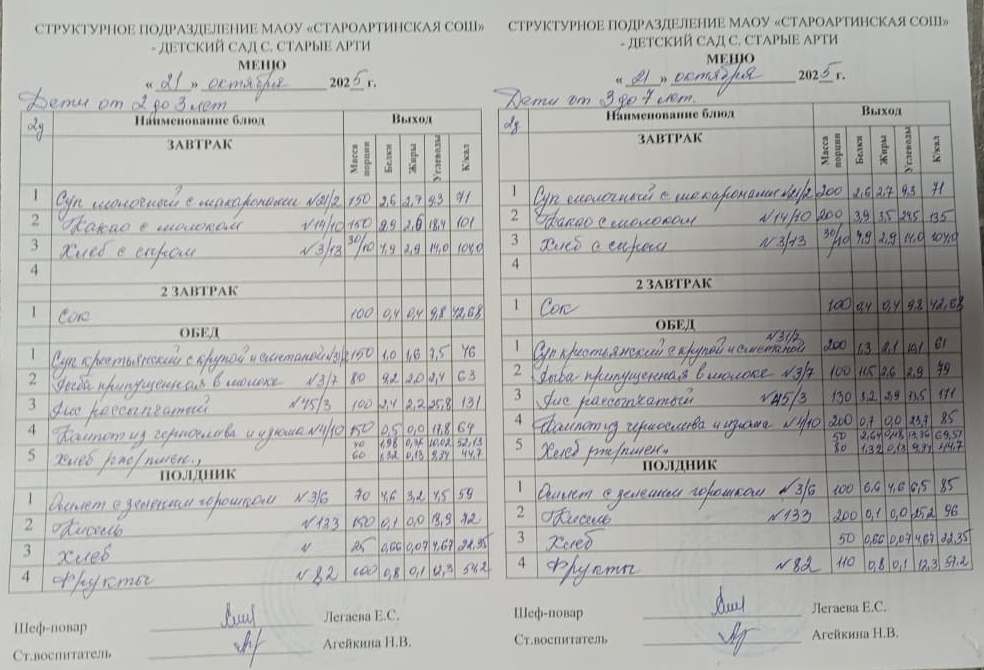 СТРУКТУРНОЕ ПОДРАЗДЕЛЕНИЕ МАОУ «СТАРОАРТИНСКАЯ СОШ»
- ДЕТСКИЙ САД С. СТАРЫЕ АРТИ
МЕНЮ
« 21 » октября 2025 г.
Дети от 2 до 3 лет
2д Наименование блюд Выход
ЗАВТРАК Масса порции Белки Жиры Углеводы К/кал
1 Суп молочный с макаронами №21/2 150 2,6 2,7 9,3 71
2 Какао с молоком №14/10 150 2,6 18,4 101
3 Хлеб с сыром №3/13 30/10 4,9 2,9 14,0 104,0
4
2 ЗАВТРАК
1 Сок 100 0,4 0,4 9,8 42,68
ОБЕД
1 Суп крестьянский с крупой и сметаной 150 1,0 1,6 7,5 46
2 Рыба припущенная в молоке №3/7 80 9,2 2,0 2,4 63
3 Рис рассыпчатый №45/3 100 2,4 2,2 25,8 131
4 Компот из чернослива и изюма №4/10 150 0,5 0,0 17,8 64
5 Хлеб рж/пшен. 40 1,98 10,02 52,13
60 1,32 0,13 9,34 44,7
ПОЛДНИК
1 Омлет с зеленым горошком №3/6 70 4,6 3,2 4,5 59
2 Кисель №133 150 0,1 0,0 18,9 72
3 Хлеб 25 0,66 0,07 4,67 22,35
4 Фрукты №82 100 0,8 0,1 12,3 57,2
Шеф-повар Легаева Е.С.
Ст.воспитатель Агейкина Н.В.
СТРУКТУРНОЕ ПОДРАЗДЕЛЕНИЕ МАОУ «СТАРОАРТИНСКАЯ СОШ»
- ДЕТСКИЙ САД С. СТАРЫЕ АРТИ
МЕНЮ
« 21 » октября 2025 г.
Дети от 3 до 7 лет.
2д Наименование блюд Выход
ЗАВТРАК Масса порции Белки Жиры Углеводы К/кал
1 Суп молочный с макаронами №21/2 200 2,6 2,7 9,3 71
2 Какао с молоком №14/10 200 3,9 3,5 24,5 135
3 Хлеб с сыром №3/13 30/10 4,9 2,9 14,0 104,0
4
2 ЗАВТРАК
1 Сок 100 0,4 0,4 9,8 42,68
ОБЕД
№31/2
1 Суп крестьянский с крупой и сметаной 200 1,3 2,1 10,1 61
2 Рыба припущенная в молоке №3/7 100 11,5 2,6 2,9 79
3 Рис рассыпчатый №45/3 130 3,2 2,9 33,5 171
4 Компот из чернослива и изюма №4/10 200 0,7 0,0 23,7 85
5 Хлеб рж/пшен. 50 2,64 0,48 13,36 69,51
80 1,32 0,13 9,34 44,7
ПОЛДНИК
1 Омлет с зеленым горошком №3/6 100 6,6 4,6 6,5 85
2 Кисель №133 200 0,1 0,0 25,2 96
3 Хлеб 50 0,66 0,07 4,67 22,35
4 Фрукты №82 110 0,8 0,1 12,3 57,2
Шеф-повар Легаева Е.С.
Ст.воспитатель Агейкина Н.В.